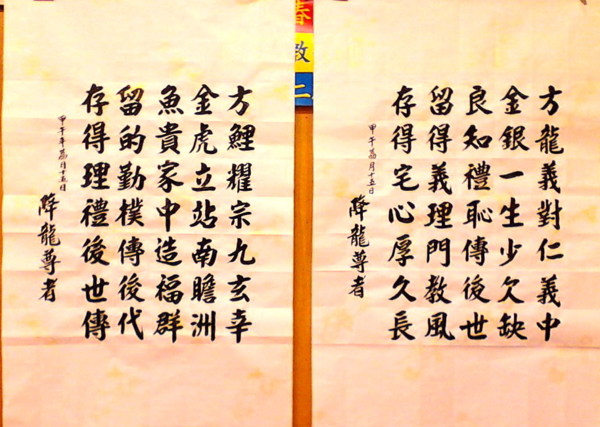 方龍義對仁義中
金銀一生少欠缺
良知禮恥傳後世
留得義理門教風
存得宅心厚久長
甲午荔月十五日
降龍尊者
春
教
二
方鯉耀宗九玄幸
金虎立站南瞻洲
魚貴家中造福群
留的勤樸傳後代
存得理禮後世傳
甲午年荔月十五日
降龍尊者